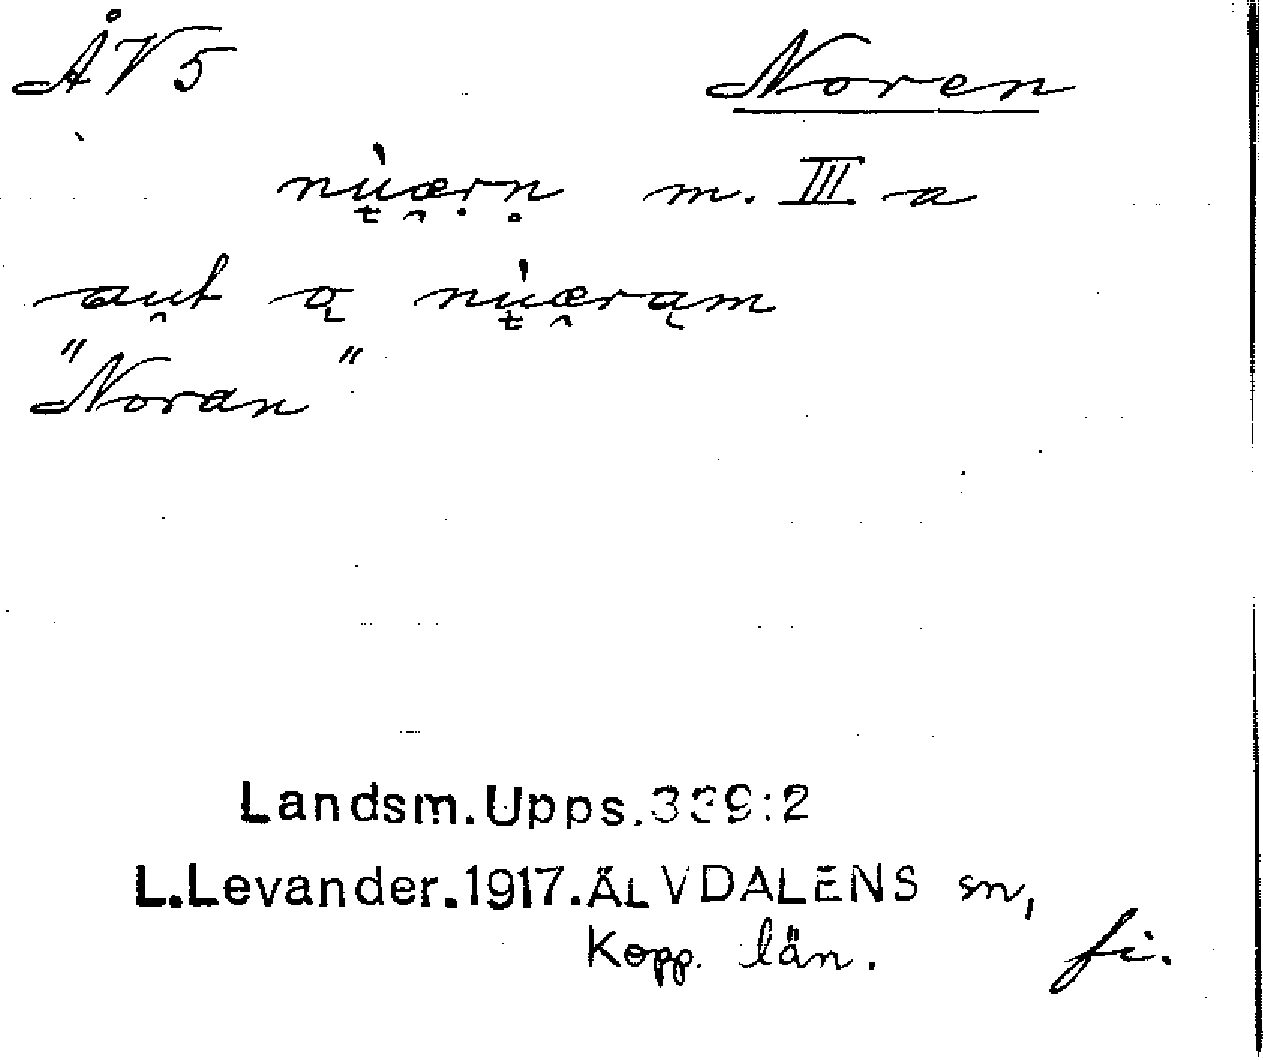 ÅV5 Noren
nu̇̀ærn m. III a
aut ą nu̇̀ærąm
"Noran"
Landsm.Upps.339:2
L.Levander.1917.ÄLVDALENS sn,
Kopp. län. fi.